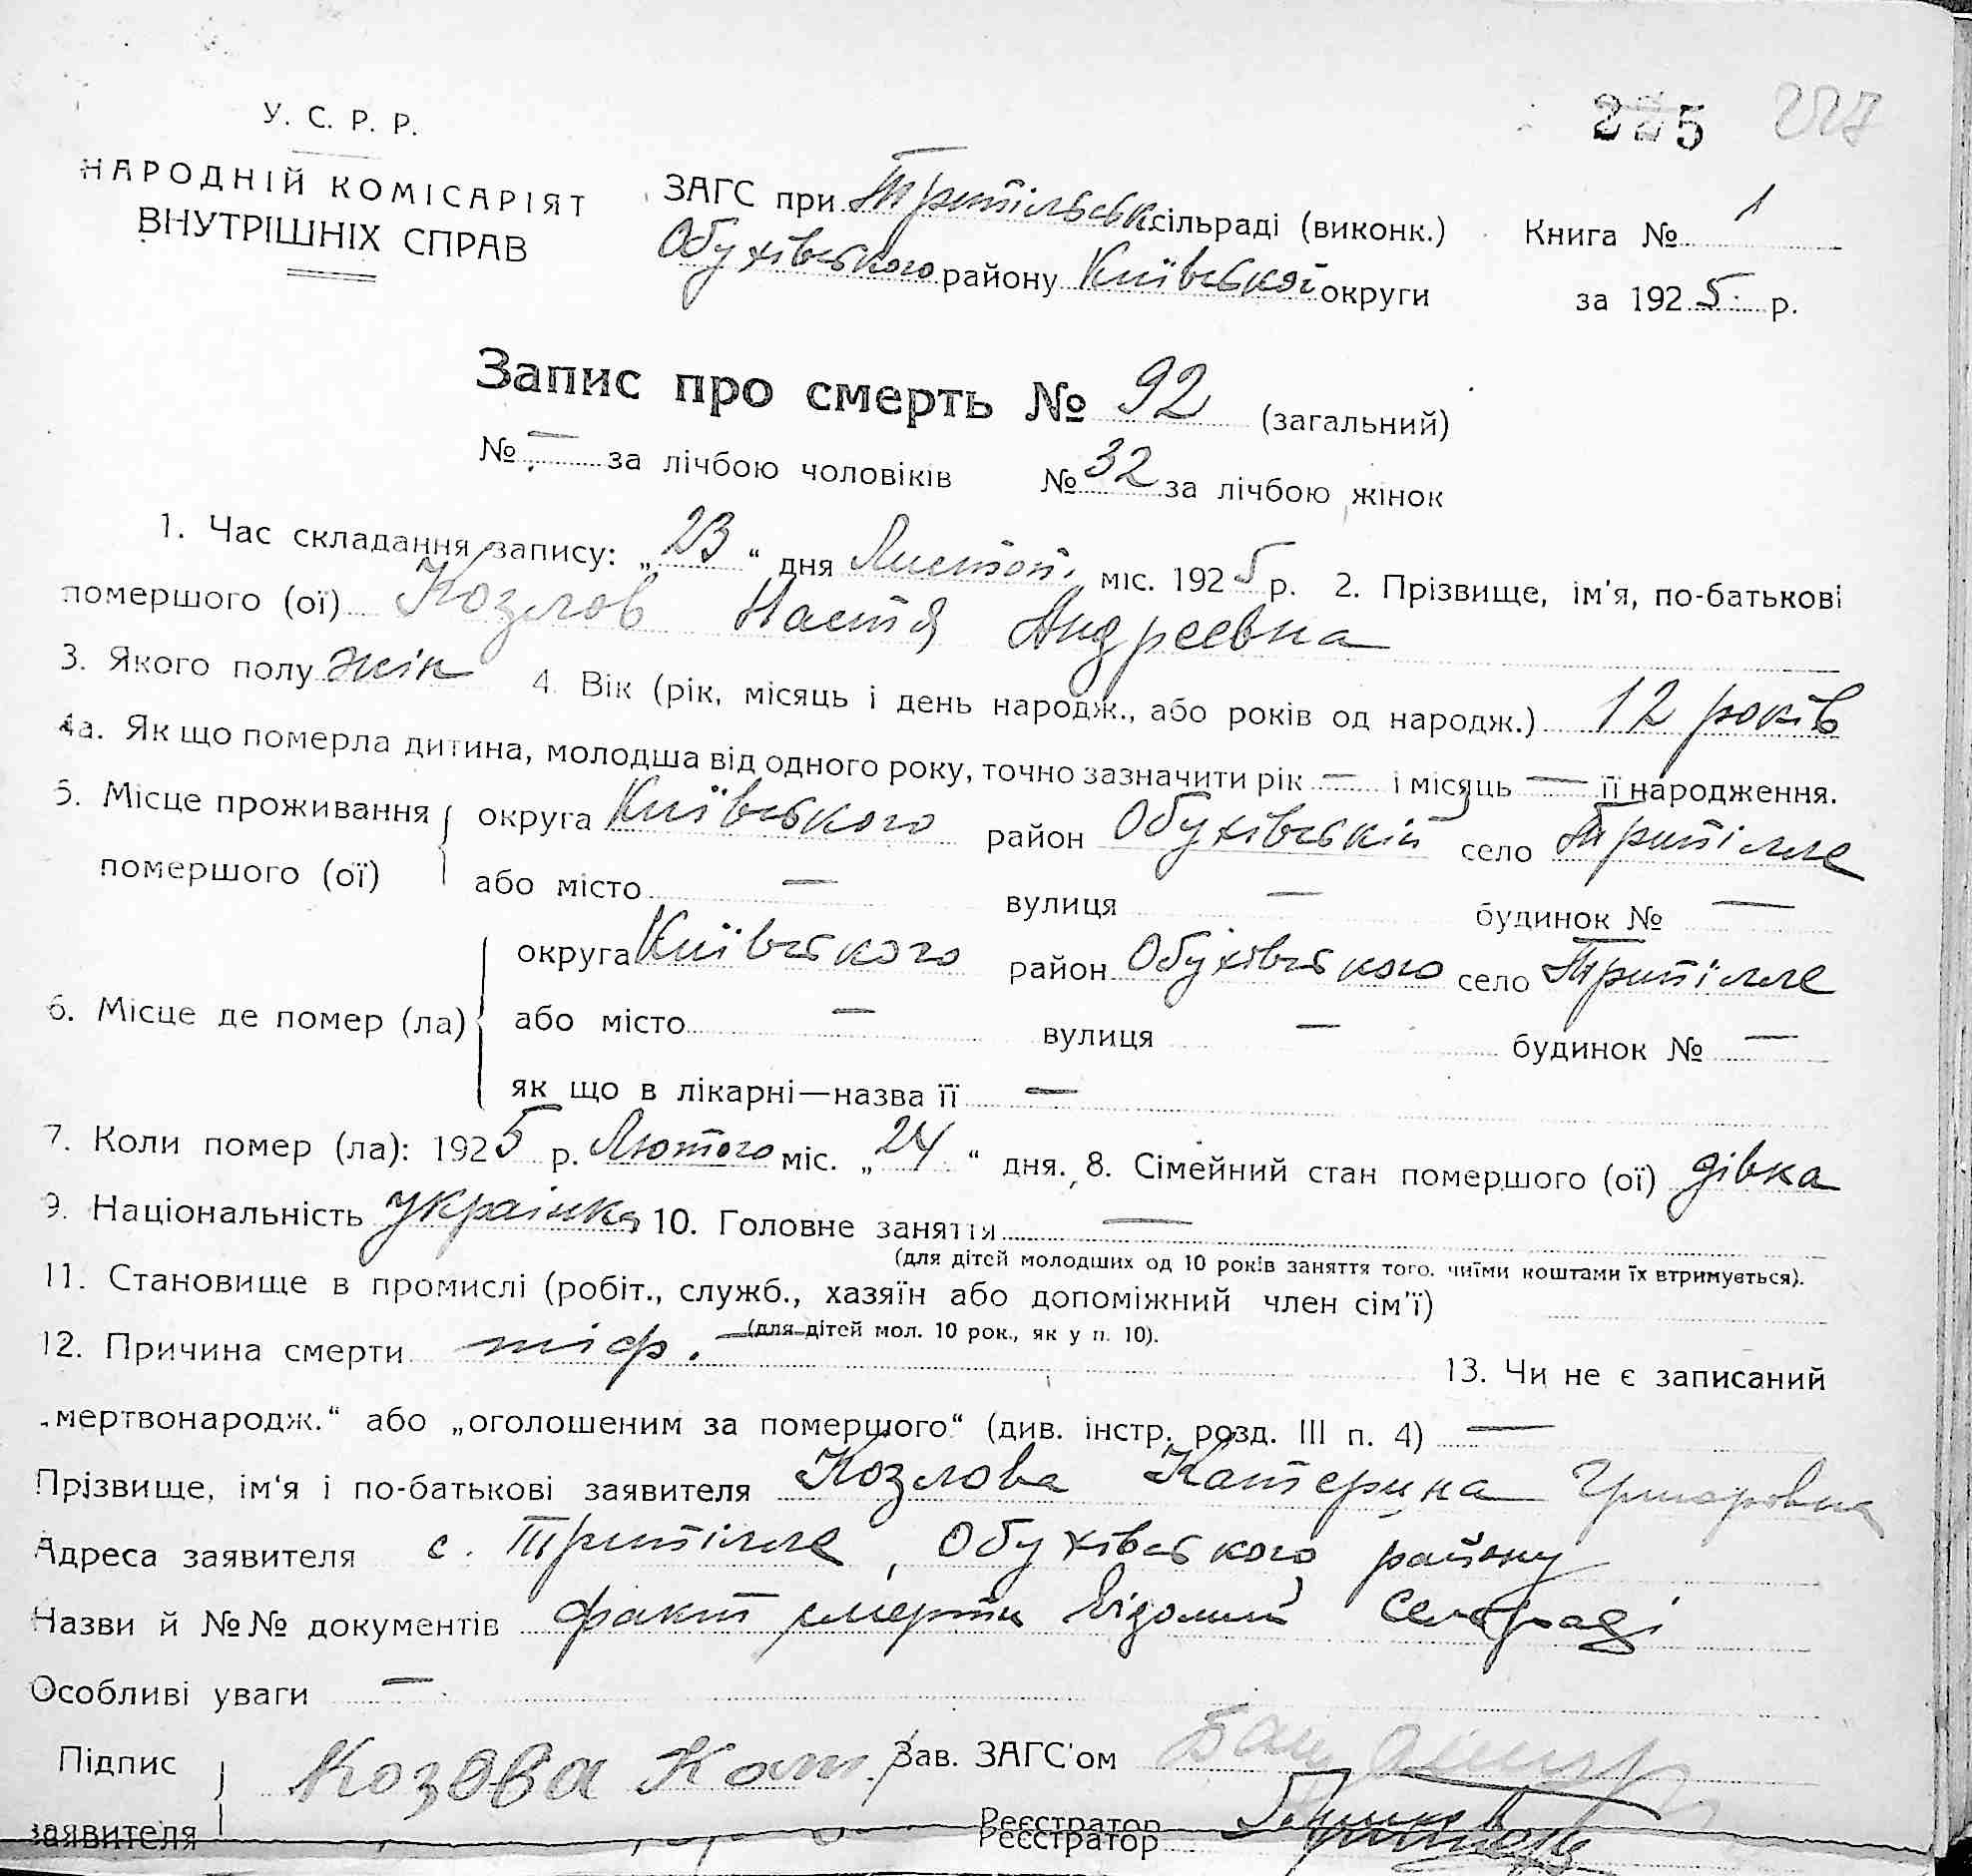 У. С. Р. Р.
НАРОДНІЙ КОМІСАРІЯТ
ВНУТРІШНІХ СПРАВ
225 227
ЗАГС при Трипільськ. сільраді (виконк.) Книга № 1
Обухівського району Київської округи за 1925 р.
Запис про смерть № 92 (загальний)
№ — за лічбою чоловіків № 32 за лічбою жінок
1. Час складання запису: „23“ дня Листоп. міс. 1925 р. 2. Прізвище, ім'я, по-батькові
помершого (ої) Козлов Настя Андреевна
3. Якого полу жін 4. Вік (рік, місяць і день народж., або років од народж.) 12 років
4а. Як що померла дитина, молодша від одного року, точно зазначити рік — і місяць — її народження.
5. Місце проживання округа Київського район Обухівській село Трипілле
помершого (ої) або місто — вулиця — будинок № —
округа Київського район Обухівського село Трипілле
6. Місце де помер (ла) або місто — вулиця — будинок № —
як що в лікарні—назва її —
7. Коли помер (ла): 1925 р. Лютого міс. „24“ дня. 8. Сімейний стан помершого (ої) дівка
9. Національність українка 10. Головне заняття —
(для дітей молодших од 10 років заняття того, чиїми коштами їх втримується).
11. Становище в промислі (робіт., служб., хазяїн або допоміжний член сім'ї)
(для дітей мол. 10 рок., як у п. 10).
12. Причина смерти тіф. — 13. Чи не є записаний
„мертвонародж.“ або „оголошеним за помершого“ (див. інстр. розд. III п. 4) —
Прізвище, ім'я і по-батькові заявителя Козлова Катерина
Адреса заявителя с. Трипілле, Обухівського району
Назви й №№ документів факт смерти відомий Сельраді
Особливі уваги —
Підпис Козова Кат. Зав. ЗАГС'ом
заявителя Реєстратор
Реєстратор